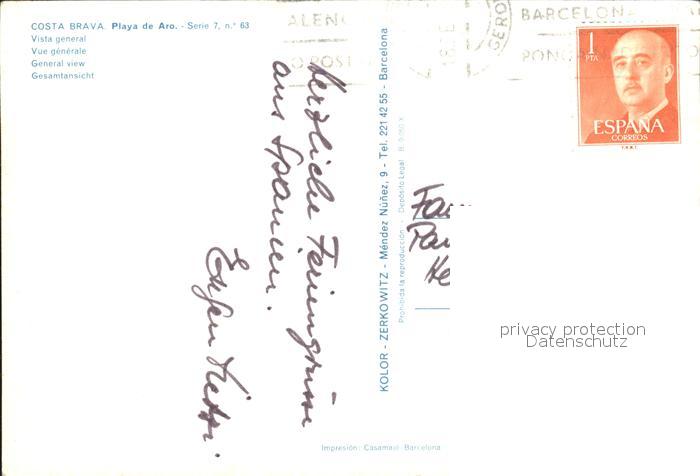 COSTA BRAVA. Playa de Aro. - Serie 7, n.° 63
Vista general
Vue générale
General view
Gesamtansicht
ALENC
O POST
GERO
BARCELONA
PONG
1
PTA
ESPAÑA
CORREOS
F.N.M.T.
Herzliche Feriengrüsse
aus Spanien.
KOLOR - ZERKOWITZ - Méndez Núñez, 9 - Tel. 221 42 55 - Barcelona
Prohibida la reproducción - Depósito Legal B.
Fam
He
privacy protection
Datenschutz
Impresión: Casamajó-Barcelona